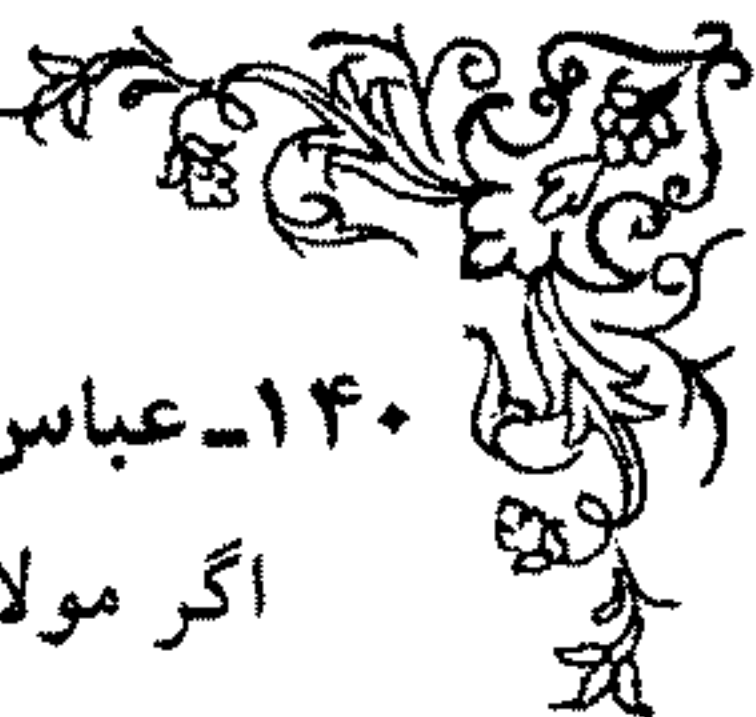 ۱۴۰ـ عباس
اگر مولا